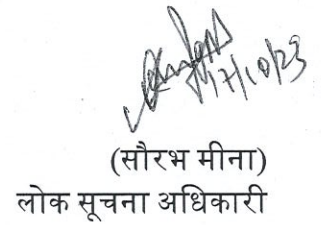 17/10/23
(सौरभ मीना)
लोक सूचना अधिकारी